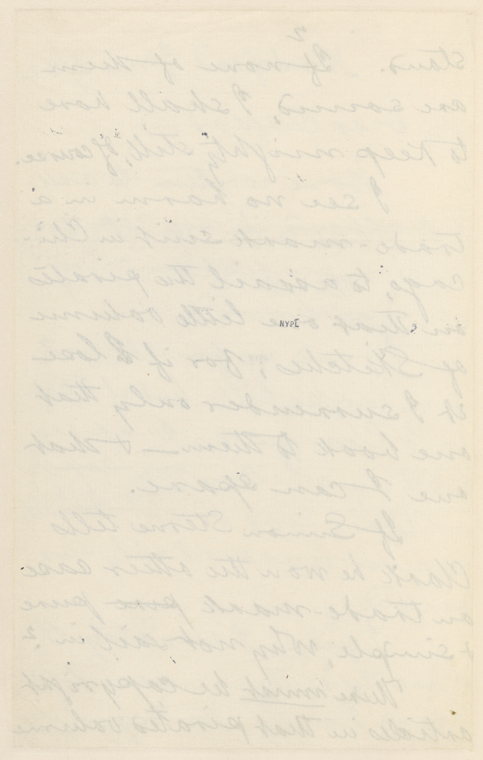 2
stand. If none of them
are sound, I shall have
to keep mighty still, of course.
I see no harm in a
trade-mark suit in Chi-
cago, to assail the pirate
on that one little volume
of Sketches; for if I lose
it I surrender only that
one book to them — & that
one I can spare.
If Simon Sterne tells
Clark he won the other case
on trade-mark pure
& simple, why not sail in?
There must be copyright
articles in that pirated volume
NYPL